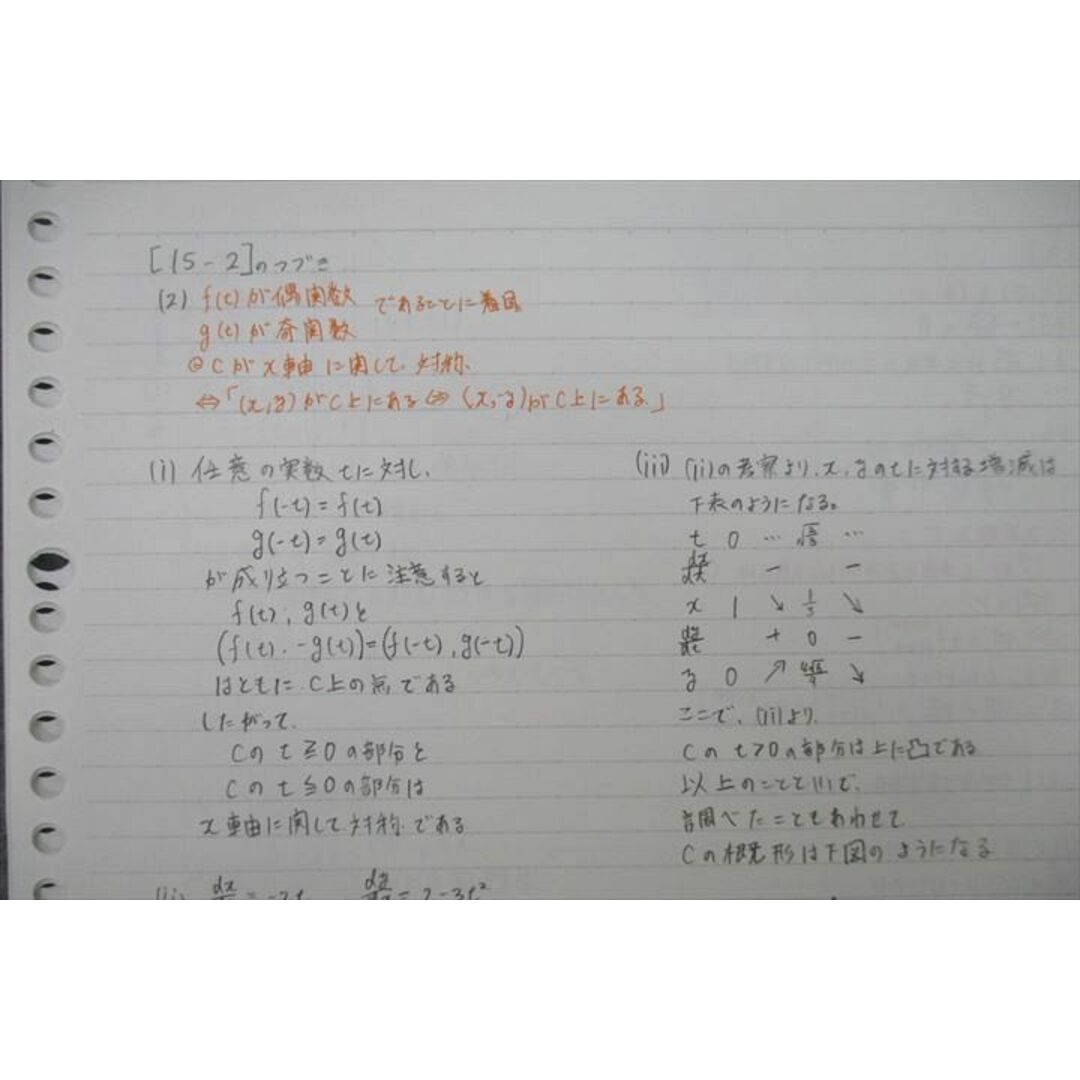 [15-2]のつづき
(2) f(t)が偶関数 であることに着目
g(t)が奇関数
◎ Cがx軸に関して対称
⇔「(x,y)がC上にある⇔(x,-y)がC上にある」
(i) 任意の実数tに対し、
f(-t)=f(t)
g(-t)=g(t)
が成り立つことに注意すると
f(t), g(t)と
(f(t), -g(t))=(f(-t), g(-t))
はともにC上の点である
したがって、
Cのt≧0の部分と
Cのt≦0の部分は
x軸に関して対称である
(ii) dx/ =-2t dy/ =2-3t²
(iii) (ii)の考察より、x, yのtに対する増減は
下表のようになる。
t 0 … …
dx/dt - -
x 1 ↘ 1/3 ↘
dy/dt + 0 -
y 0 ↗ ↘
ここで、(ii)より、
Cのt>0の部分は上に凸である
以上のことと(i)で、
調べたこともあわせて
Cの概形は下図のようになる